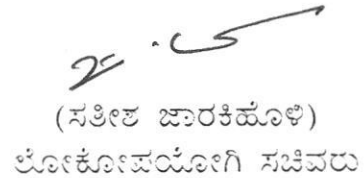 (ಸತೀಶ ಜಾರಕಿಹೊಳಿ)
ಲೋಕೋಪಯೋಗಿ ಸಚಿವರು